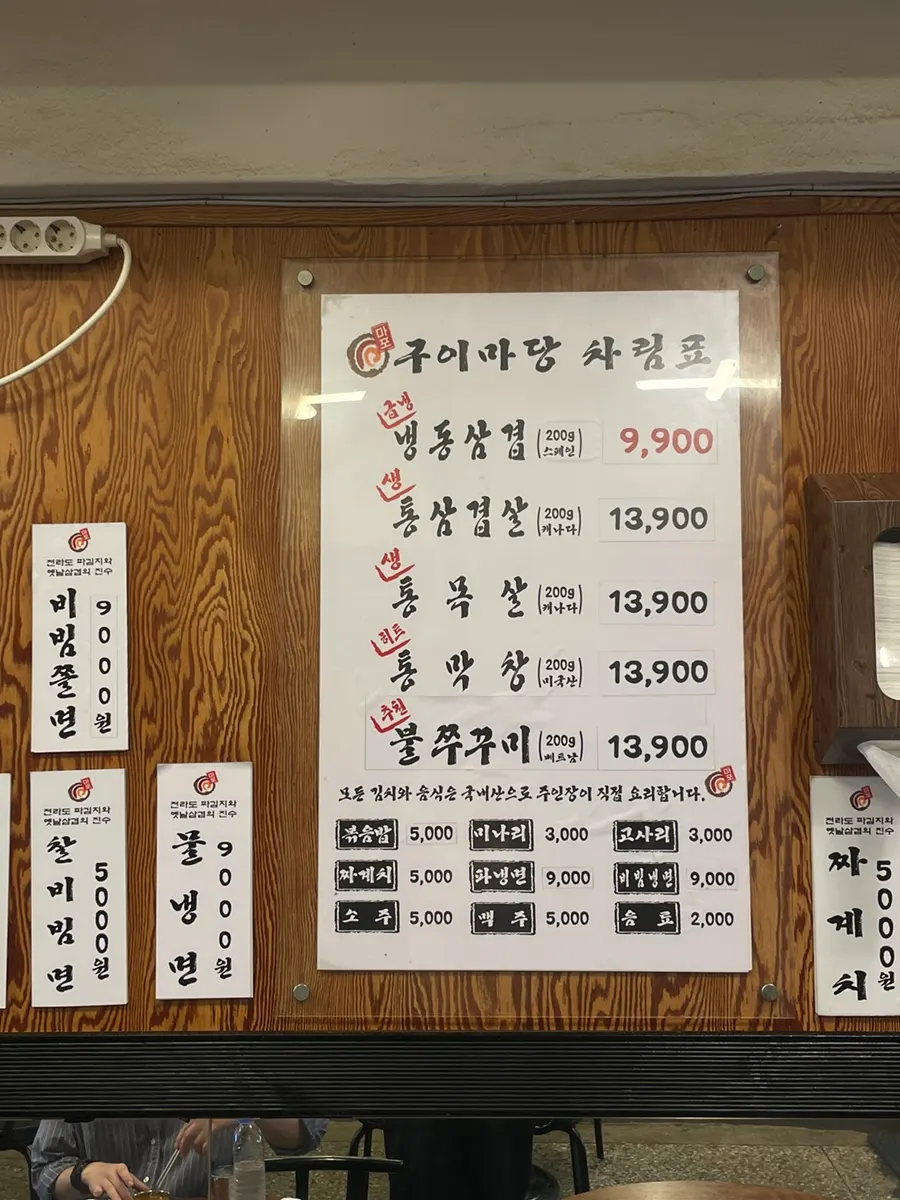 마포
구이마당 차림표
급냉
냉동삼겹 (200g 스페인) 9,900
생
통삼겹살 (200g 캐나다) 13,900
생
통목살 (200g 캐나다) 13,900
히트
통막창 (200g 미국산) 13,900
추천
불쭈꾸미 (200g 베트남) 13,900
모든 김치와 음식은 국내산으로 주인장이 직접 요리합니다.
마포
볶음밥 5,000 미나리 3,000 고사리 3,000
짜계치 5,000 파냉면 9,000 비빔냉면 9,000
소주 5,000 맥주 5,000 음료 2,000
마포
전라도 파김치와
옛날삼겹의 진수
비빔쫄면 9000원
마포
전라도 파김치와
옛날삼겹의 진수
찰비빔면 5000원
마포
전라도 파김치와
옛날삼겹의 진수
물냉면 9000원
마포
전라도 파김치와
옛날삼겹의 진수
짜계치 5000원